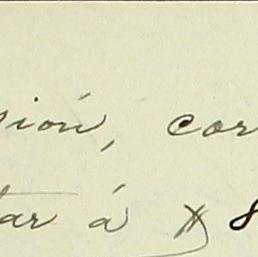 sión, cor
tar á $ 8